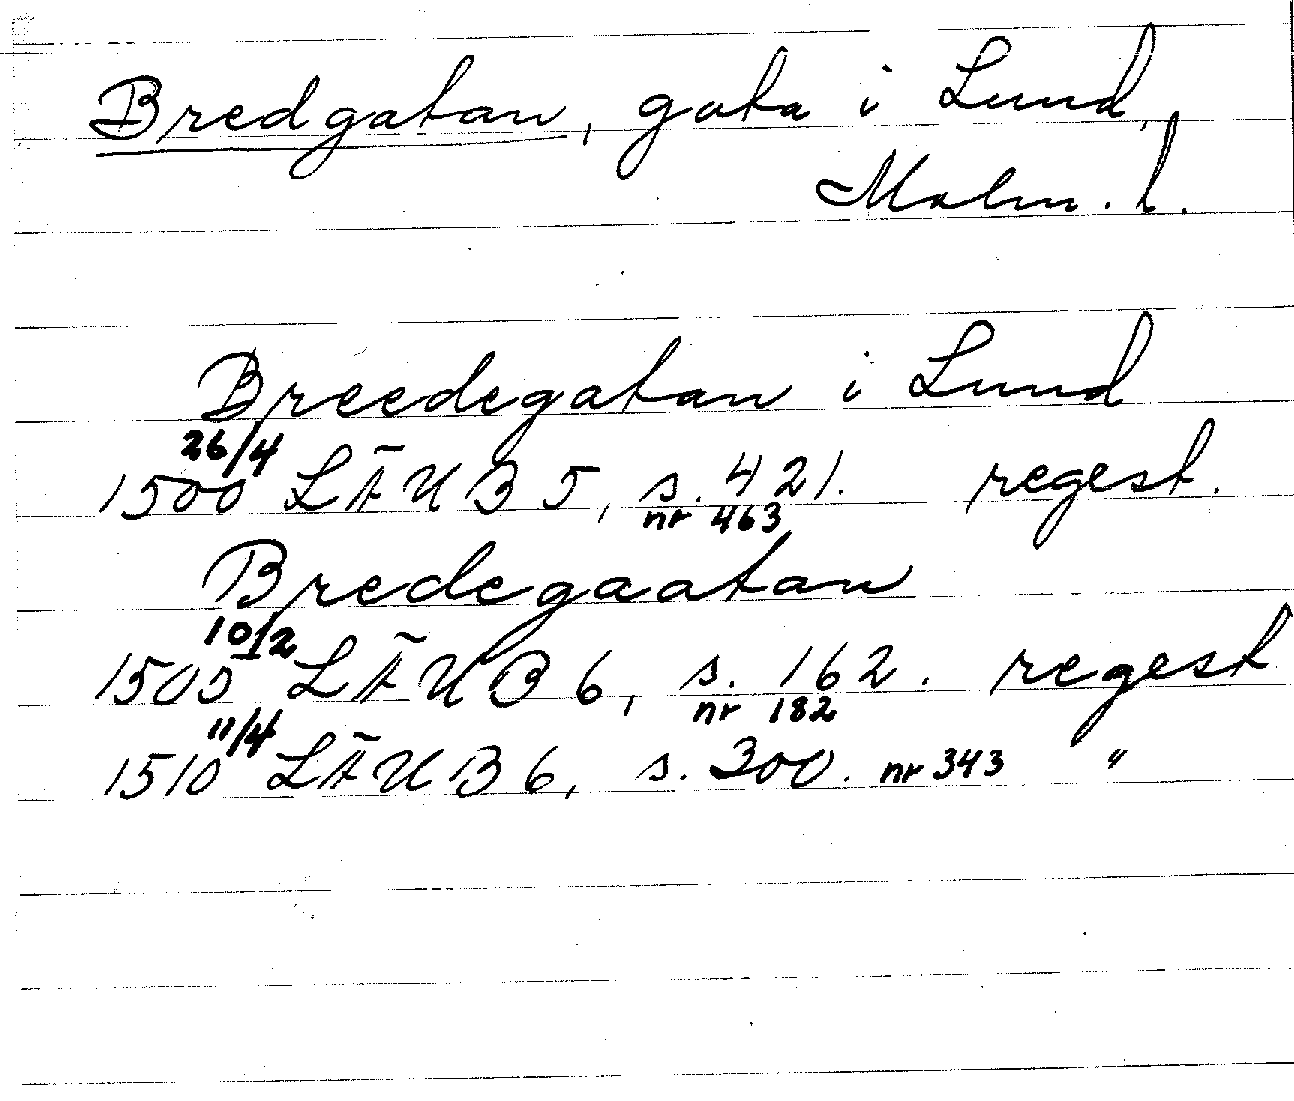 Bredgatan, gata i Lund,
Malm. l.
Breedegatan i Lund
26/4
1500 LÄUB 5, s. 421. regest.
nr 463
Bredegaatan
10/2
1505 LÄUB 6, s. 162. regest
nr 182
11/4
1510 LÄUB 6, s. 300. nr 343 "